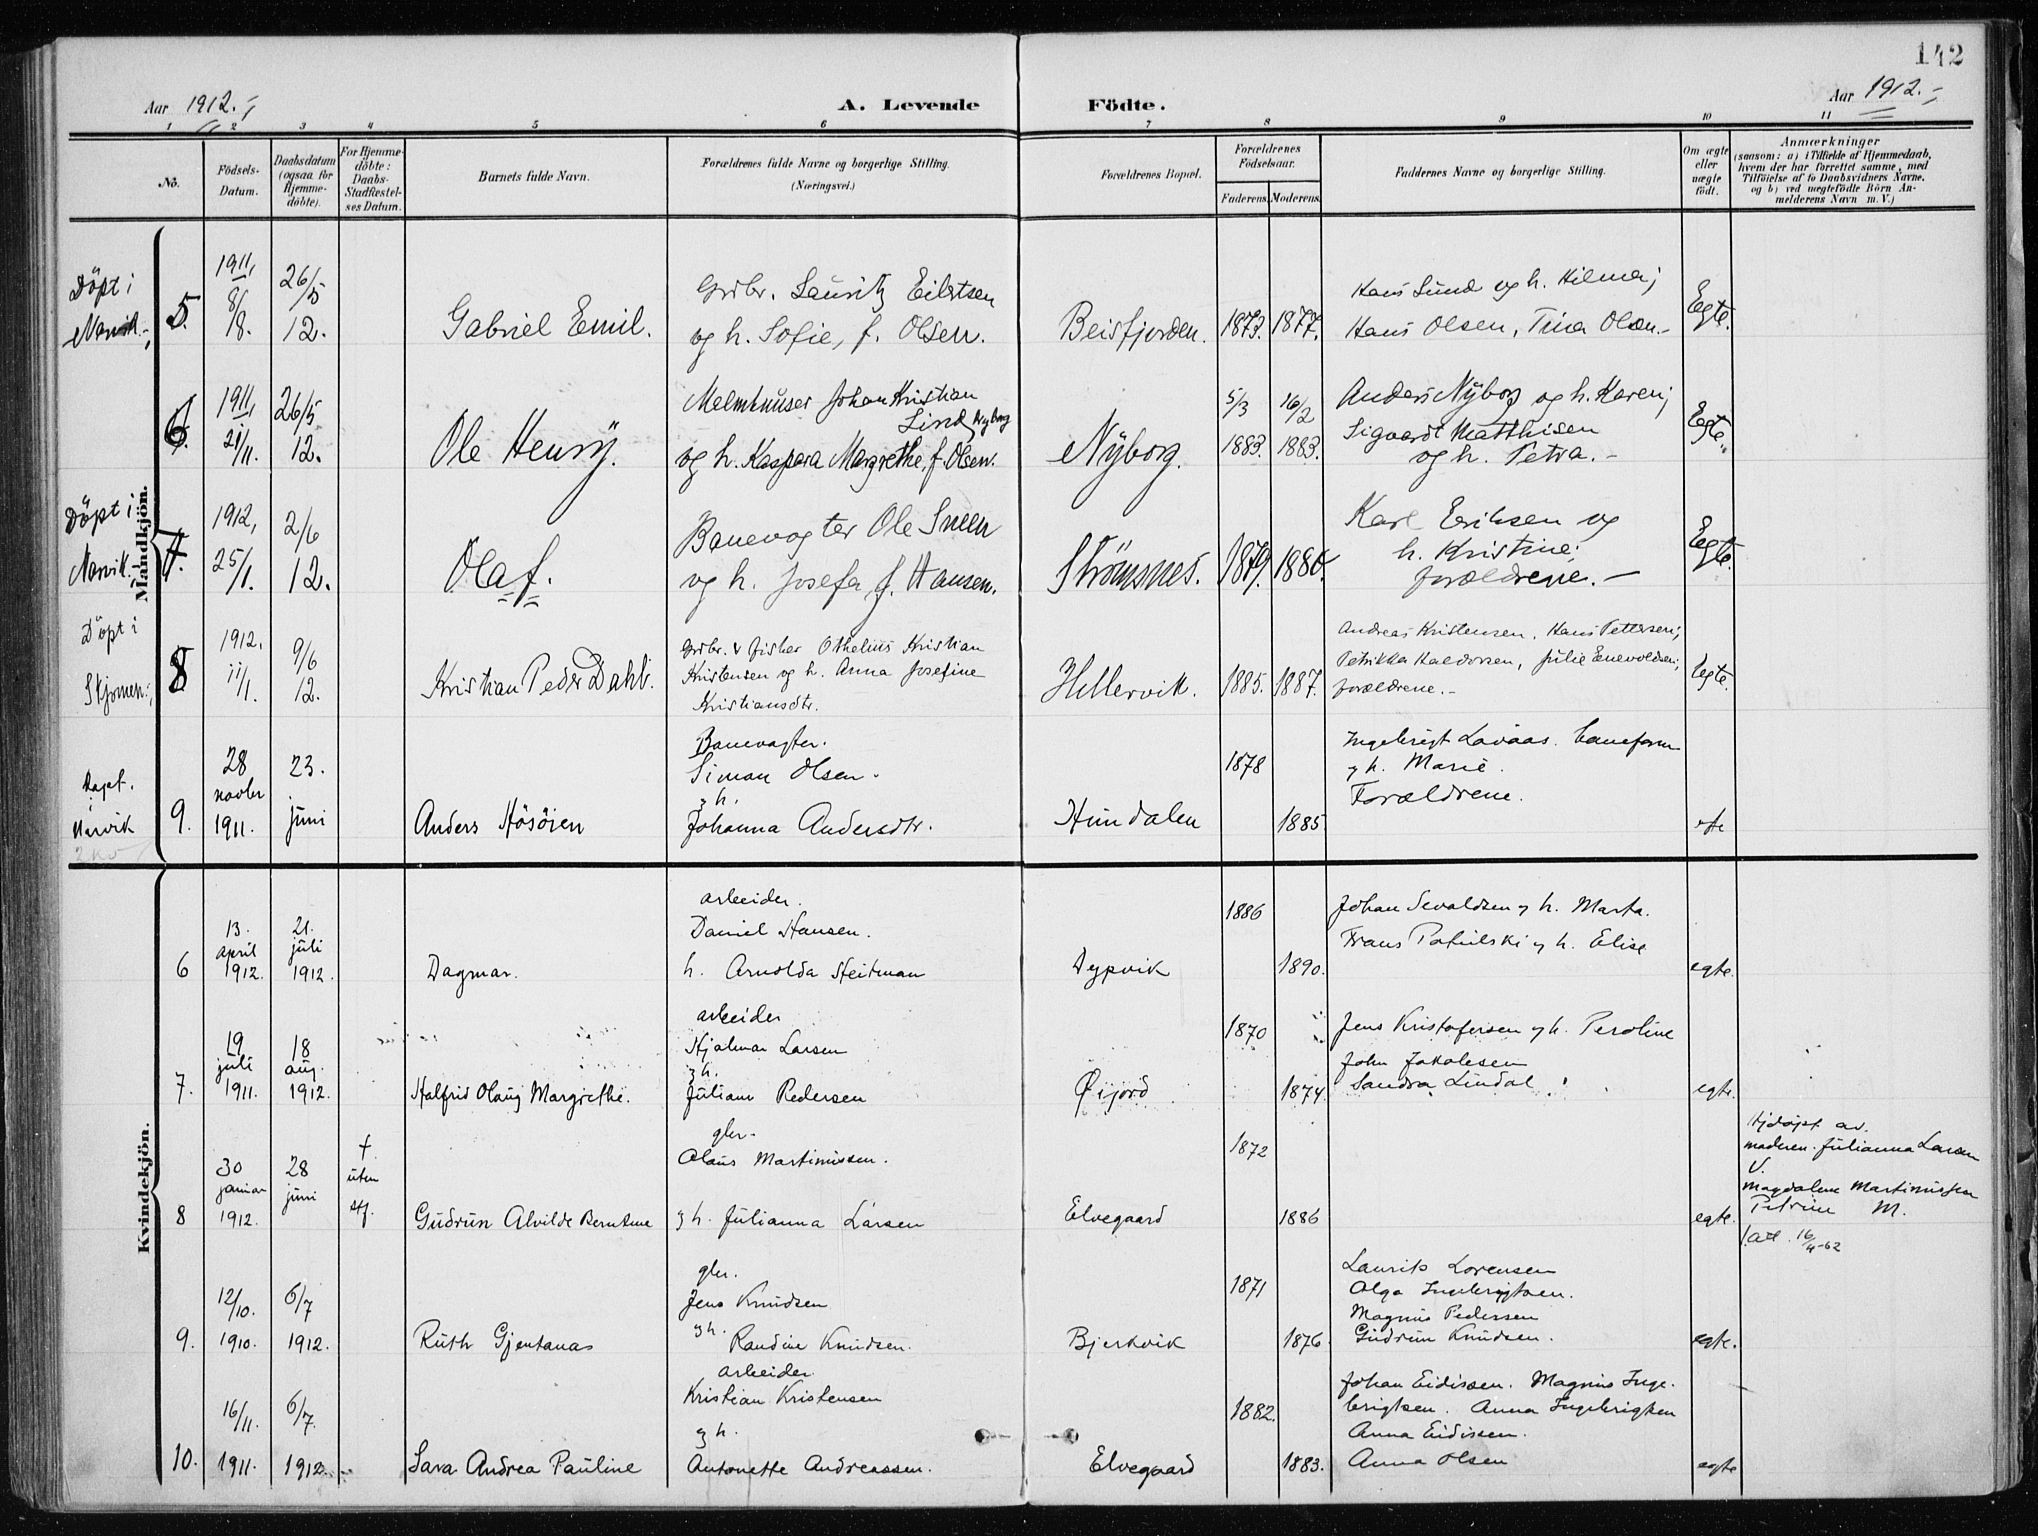 142
Aar 1912.
A. Levende Födte.
Aar 1912.
1 2 3 4 5 6 7 8 9 10 11
No.
Födsels-Datum.
Daabsdatum (ogsaa for Hjemme-döbte).
For Hjemme-döbte: Daabs-Stadfæstel-ses Datum.
Barnets fulde Navn.
Forældrenes fulde Navne og borgerlige Stilling. (Næringsvei.)
Forældrenes Bopæl.
Forældrenes Födselsaar.
Faderens. Moderens.
Faddernes Navne og borgerlige Stilling.
Om ægte eller uægte födt.
Anmærkninger
(saasom: a) i Tilfælde af Hjemmedaab, hvem der har forrettet samme, med Tilföielse af to Daabsvidners Navne, og b) ved uegtefödte Börn An-melderens Navn m. V.)
Mandkjön.
Döpt i Narvik.
5. 1911, 8/8. 26/5 12. Gabriel Emil.
Grdbr. Lauritz Eilertsen
og h. Sofie, f. Olsen.
Beisfjorden. 1873. 1877.
Hans Lund og h. Hilma;
Hans Olsen, Tina Olsen.
Egte.
6. 1911, 21/11. 26/5 12. Ole Henry.
Malmknuser Johan Kristian
Lind Nyborg
og h. Kaspara Margrethe, f. Olsen.
Nyborg. 5/3 1883. 16/2 1883.
Anders Nyborg og h. Karen;
Sigvardt Matthisen
og h. Petra.
Egte.
Döpt i Narvik.
7. 1912, 25/1. 2/6 12. Olaf.
Banevogter Ole Sneen
og h. Josefa, f. Hansen.
Strömsnes. 1879. 1880.
Karl Eriksen og
h. Kristine;
forældrene.
Egte.
Döpt i Skjomen;
8 1912. 11/1. 9/6 12. Kristian Peder Dahl.
Grdbr. & fisker Othelius Kristian
Kristensen og h. Anna Josefine
Kristiansdtr.
Hellervik. 1885. 1887.
Andreas Kristensen, Hans Pettersen;
Petrikka Haldorsen, Julie Enevoldsen;
forældrene.
Egte.
Döpt. i Narvik
9. 28 novbr 1911. 23. juni Anders Hösöien
Banevagter.
Simon Olsen.
g h.
Johanna Andersdtr.
Hundalen 1878 1885
Ingebrigt Lavaas. baneform
g h. Marie.
Forældrene.
Kvindekjön.
6 13. april 1912. 21. juli 1912. Dagmar.
arbeider.
Daniel Hansen.
h. Arnolda Heitman
Dypvik 1886 1890.
Johan Sevaldsen g h. Marta.
Frans g h. Elise
egte.
7. 19 juli 1911. 18 aug. 1912. Halfrid Olaug Margrethe.
arbeider
Hjalmar Larsen
g h.
Juliane Pedersen
Øijord 1870 1874.
Jens Kristofersen g h. Peroline
John Jakobsen
Sandra Lindal
egte.
8 30 januar 1912. 28 juni † uten stf. Gudrun Alvilde Berntine
gbr.
Olaus Martinussen.
g h. Julianna Larsen
Elvegaard 1872 1886
egte.
Hjdöpt av.
moderen Julianna Larsen
V.
Magdalene Martinussen
Petrine M.
16/4-62
9. 12/10. 1910. 6/7 1912. Ruth Gjentanas
gbr.
Jens Knudsen
g h.
Randine Knudsen.
Bjerkvik 1871 1876
Laurits Lorensen
Olga Ingebrigtsen.
Magnus Pedersen
Gudrun Knudsen.
egte.
10. 16/11. 1911. 6/7. 1912. Sara Andrea Pauline
arbeider.
Kristian Kristensen
g h.
Antonette Andreassen.
Elvegaard 1882. 1883.
Johan Eidissen. Magnus Inge-
brigtsen. Anna Ingebrigtsen
Anna Eidissen.
Anna Olsen
egte